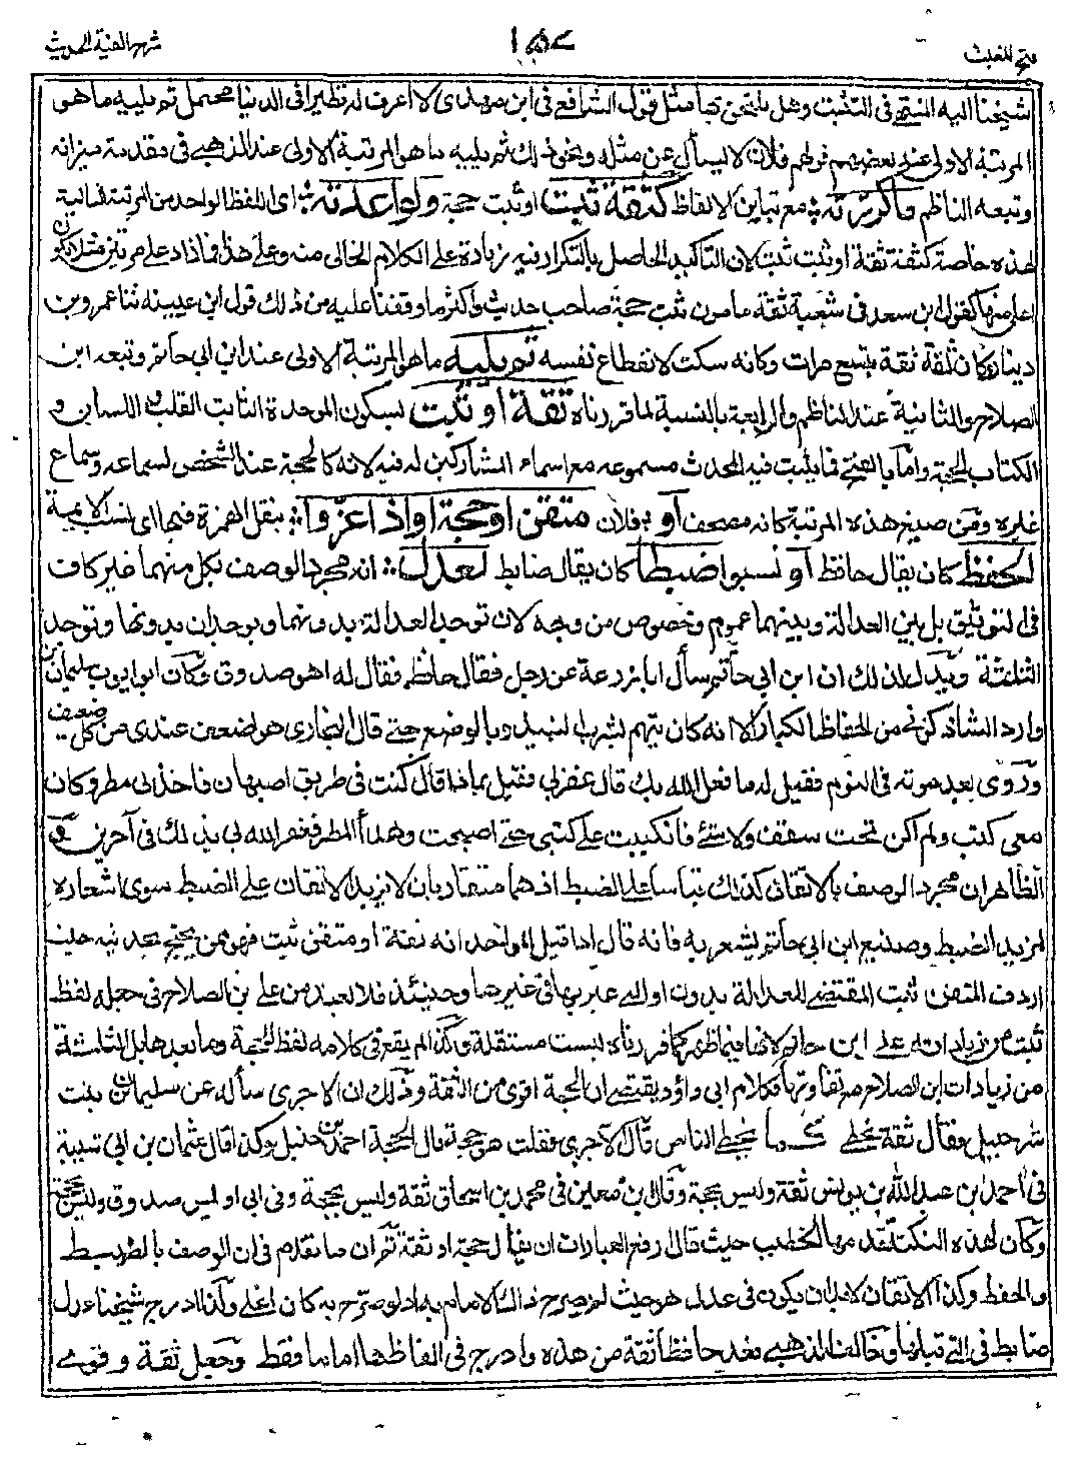 فتح المغيث
١٥٧
شرح الفية الحديث
شيخنا اليه المنتهى فى التثبت وهل يلتحق بها مثل قول الشافعى فى ابن مهدى لا اعرف له نظيرا فى الدنيا محتمل ثم يليه ما هو
المرتبة الاولى عند بعضهم قولهم فلان لا يسأل عن مثله ونحو ذلك ثم يليه ما هو المرتبة الاولى عند الذهبى فى مقدمة ميزانه
وتبعه الناظم ماكررته مع تباين الالفاظ كثقة ثبت او ثبت حجة ولو اعدته اى اللفظ الواحد من المرتبة التالية
هذه خاصة كثقة ثقة او ثبت ثبت لان التاكيد الحاصل بالتكرار فيه زيادة على الكلام الخالى منه وعلى هذا فمازاد على مرتين مثلا يكون
اعلى منها كقول ابن سعد فى شعبة ثقة مامون ثبت حجة صاحب حديث واكثر ما وقفنا عليه من ذلك قول ابن عيينه ثنا عمرو بن
دينار وكان ثقة ثقة تسع مرات وكانه سكت لانقطاع نفسه ثم يليه ما هو المرتبة الاولى عند ابن ابى حاتم وتبعه ابن
الصلاح والثانية عند الناظم والرابعة بالنسبة لما قررناه ثقة او ثبت بسكون الموحدة الثابت القلب و اللسان و
الكتاب الحجة واما بالفتح فما يثبت فيه المحدث مسموعه مع اسماء المشاركين له فيه لانه كالحجة عند الشخص لسماعه وسماع
غيره ومن صيغ هذه المرتبة كانه مصحف او فلان متقن او حجة او اذا عزوا بنقل الهمزة فيها اى نسب الايمة
الحفظ كان يقال حافظ او نسبوا ضبطا كان يقال ضابط لعدل اذ مجرد الوصف بكل منهما غير كاف
فى التوثيق بل بين العدالة وبينهما عموم وخصوص من وجه لان توجد العدالة بدونهما ويوجدان بدونها وتوجد
الثلثة ويدل لذلك ان ابن ابى حاتم سأل ابا زرعة عن رجل فقال حافظ فقال له اهو صدوق وكان ابو ايوب سليمان بن
داود الشاذكونى من الحفاظ الكبار الا انه كان يتهم بشرب النبيذ وبالوضع حتى قال البخارى هو اضعف عندى من كل ضعيف
وروى بعد موته فى النوم فقيل له ما فعل الله بك قال غفرلى فقيل بماذا قال كنت فى طريق اصبهان فاخذنى مطر وكان
معى كتب ولم اكن تحت سقف ولا شئ فانكببت على كتبى حتى اصبحت وهدأ المطر فغفر الله لى بذلك فى آخرين و
الظاهر ان مجرد الوصف بالاتقان كذلك قياسا على الضبط اذ هما متقاربان لا يزيد الاتقان على الضبط سوى اشعاره
بمزيد الضبط وصنيع ابن ابى حاتم يشعر به فانه قال اذا قيل للواحد انه ثقة او متقن ثبت فهو ممن يحتج بحديثه حيث
اردف المتقن ثبت المقتضى للعدالة بدون او التى عبر بها فى غيرها وحينئذ فلا يعد من على بن الصلاح فى جعله لفظ
ثبت من زياداته على ابن حاتم لانها فيما ظهر كما قررناه ليست مستقلة وكذا لم يقع فى كلامه لفظ الحجة وما بعدها بل الثلثة
من زيادات ابن الصلاح مع تفاوتها فكلام ابى داود يقتضى ان الحجة اقوى من الثقة وذلك ان الاجرى سأله عن سليمان بن بنت
شرحبيل فقال ثقة يخطى كما يخطى الناس قال الآجرى فقلت هو حجة قال الحجة احمد بن حنبل وكذا قال عثمان بن ابى شيبة
فى احمد بن عبد الله بن يونس ثقة وليس بحجة وقال ابن معين فى محمد بن اسحاق ثقة وليس بحجة وفى ابى اويس صدوق وليس بحجة
وكان لهذه النكتة قدمها الخطيب حيث قال ارفع العبارات ان يقال حجة او ثقة ثم ان ما تقدم فى ان الوصف بالضبط
والحفظ وكذا الاتقان لابد ان يكون فى عدل هو حيث لم يصرح ذلك الامام به اذ لو صرح به كان اعلى وكذا ادرج شيخنا عدل
ضابط فى التى قبلها وخالف الذهبى فعد حافظا ثقة من هذه وادرج فى الفاظها اماما فقط وجعل ثقة و قوى